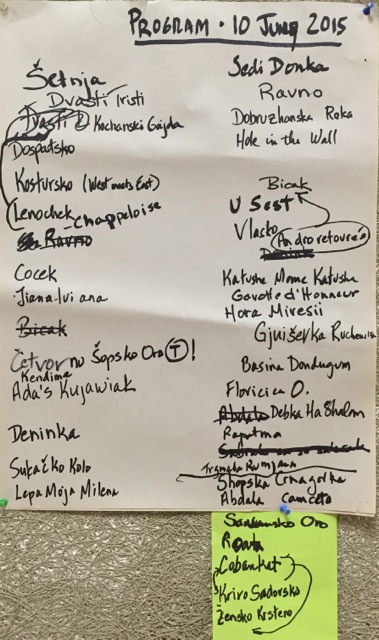 PROGRAM · 10 June 2015
Šetnja
Dvasti Tristi
Dvasti
Kochanski Gajda
Dospatsko
Kostursko (West meets East)
Lenochek
Chappeloise
Ravno
Cocek
Jiana lui ana
Bicak
Četvorno Šopsko Oro (T)!
Kendime
Ada's Kujawiak
Deninka
Sukačko Kolo
Lepa Moja Milena
Sedi Donka
Ravno
Dobruzhanska Reka
Hole in the Wall
Bicak
U Šest
Vlasko
Andro retourée
Katushe Mome Katushe
Gavotte d'Honneur
Hora Miresii
Gjuševka Ruchenitsa
Basina Dondugum
Floricica O.
Abdala Debka HaShalom
Rapatma
Trgnala Rumjana
Shopska Crnagorka
Abdala
Oro
Cobankat
Krivo Sadovsko
Žensko Krsteno